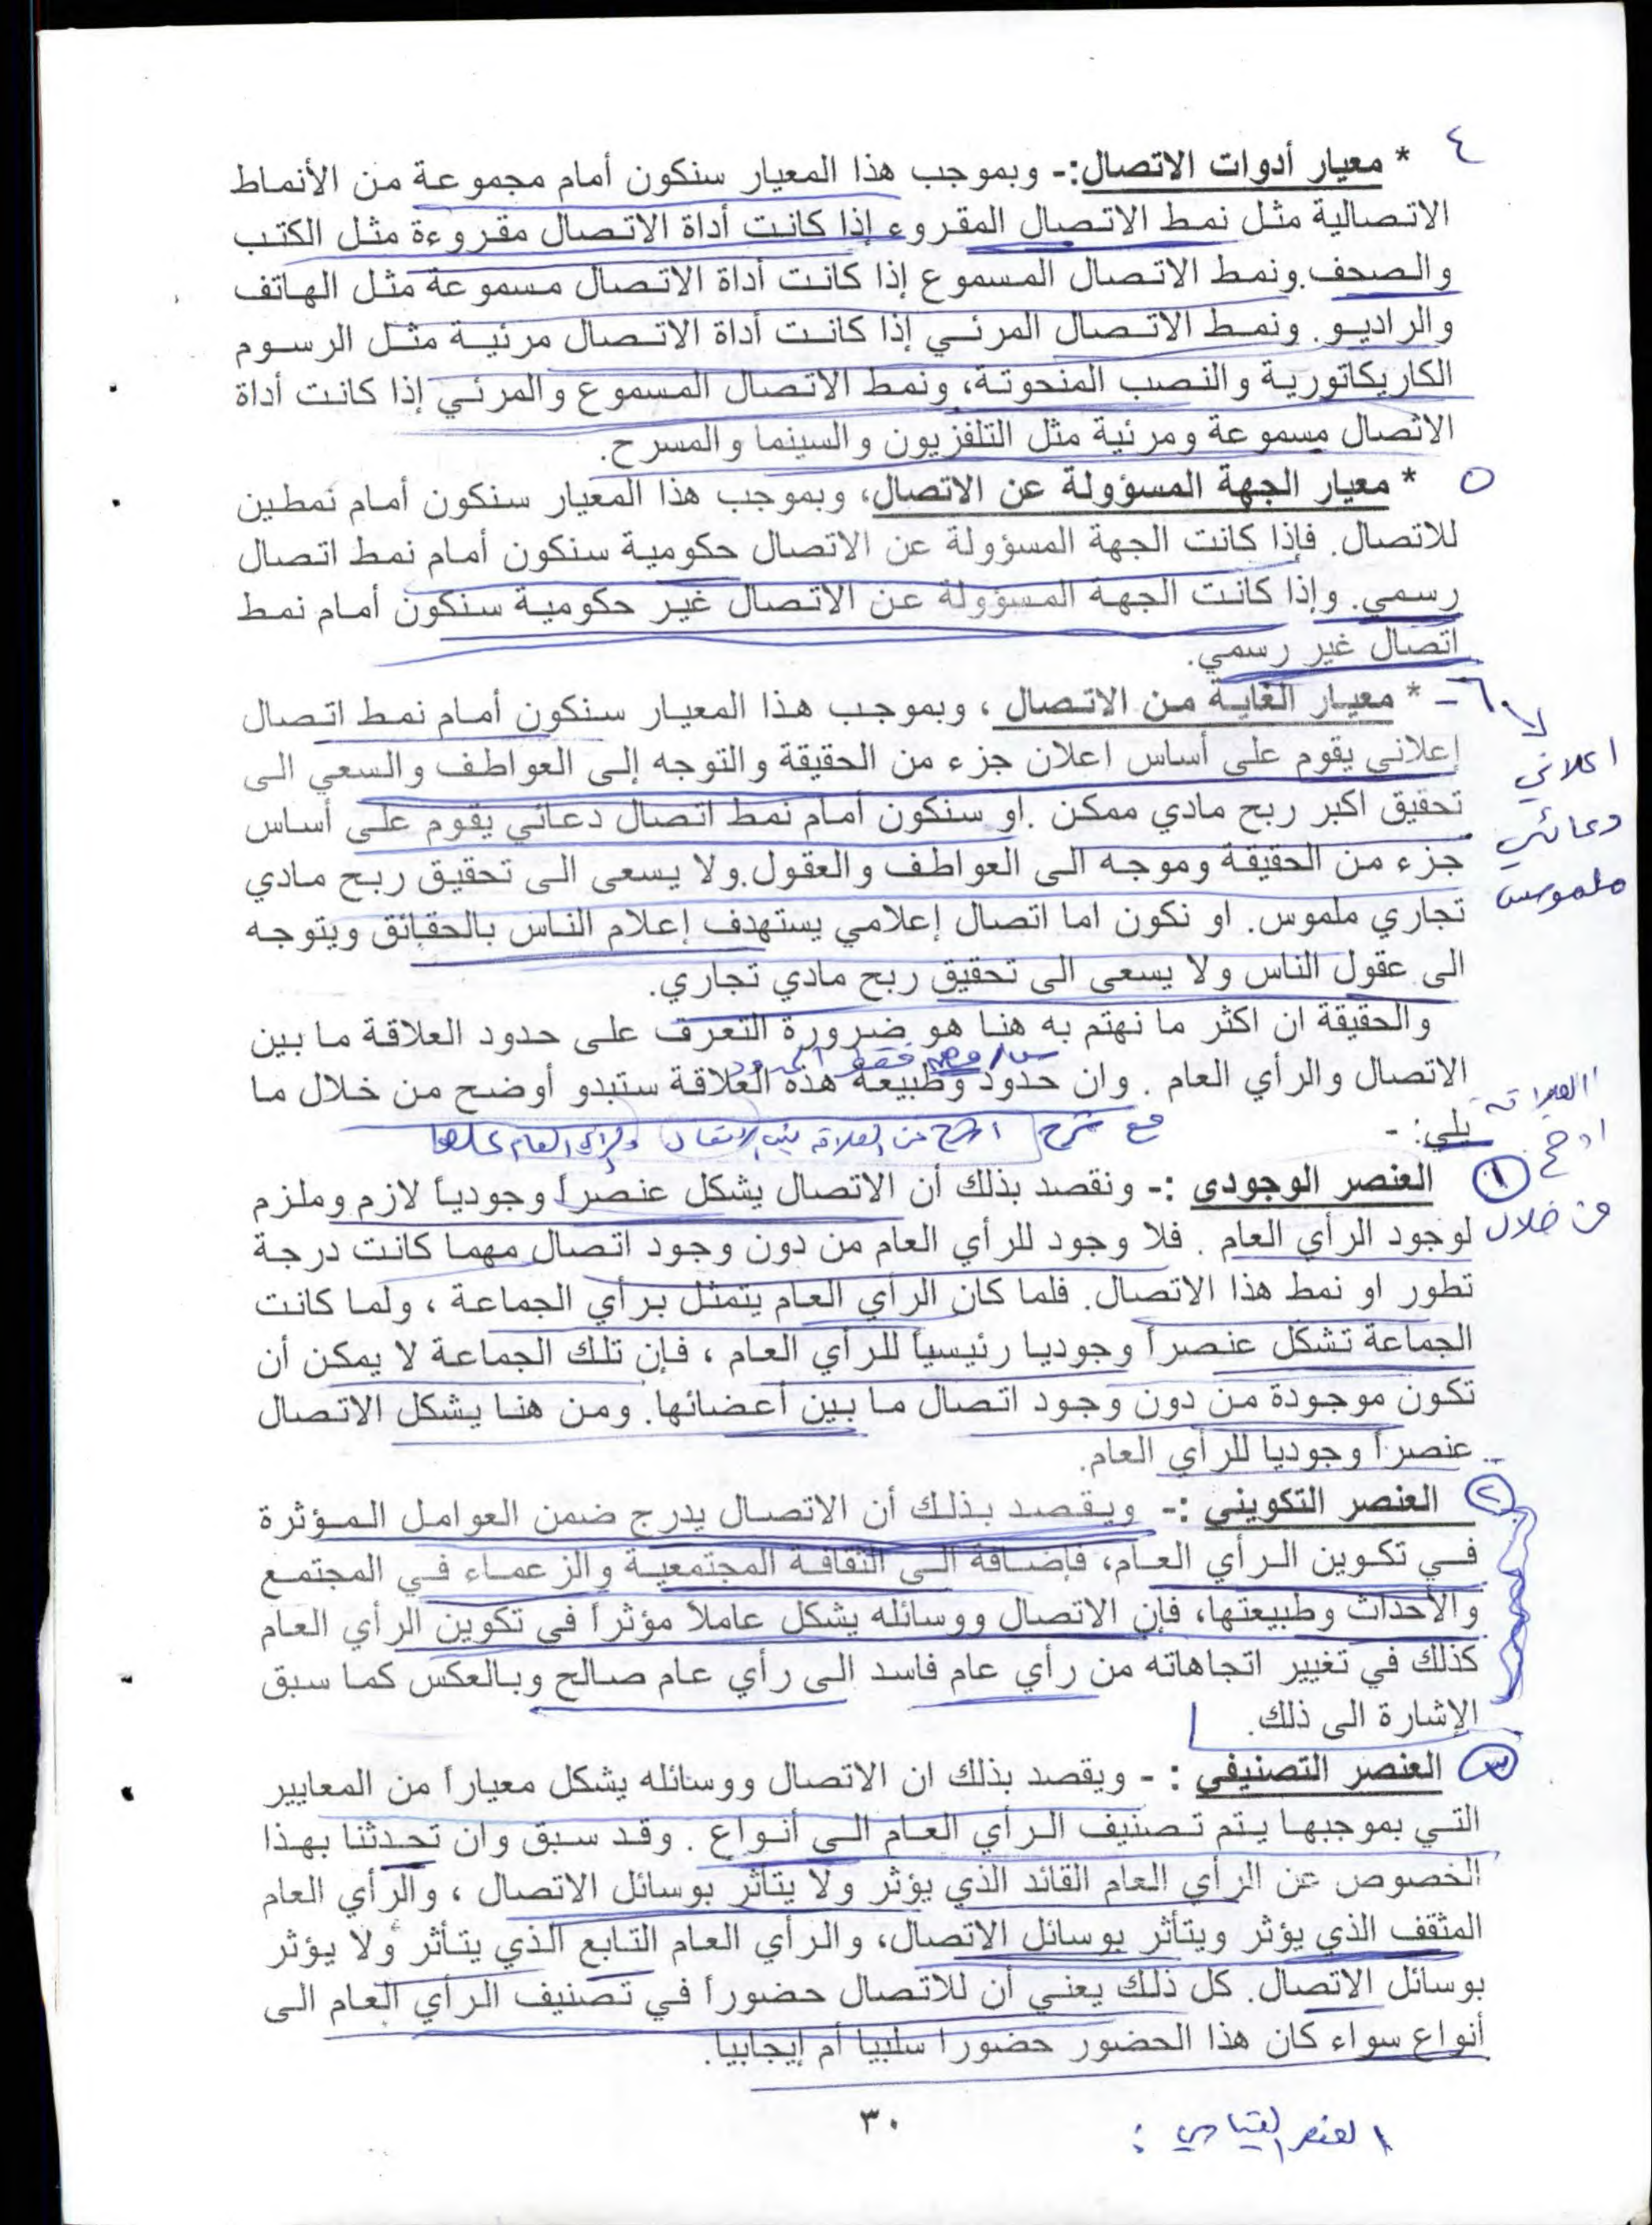 ٤ * معيار أدوات الاتصال:- وبموجب هذا المعيار سنكون أمام مجموعة من الأنماط
الاتصالية مثل نمط الاتصال المقروء إذا كانت أداة الاتصال مقروءة مثل الكتب
والصحف. ونمط الاتصال المسموع إذا كانت أداة الاتصال مسموعة مثل الهاتف
والراديو. ونمط الاتصال المرئي إذا كانت أداة الاتصال مرئية مثل الرسوم
الكاريكاتورية والنصب المنحوتة، ونمط الاتصال المسموع والمرئي إذا كانت أداة
الاتصال مسموعة ومرئية مثل التلفزيون والسينما والمسرح.
٥ * معيار الجهة المسؤولة عن الاتصال، وبموجب هذا المعيار سنكون أمام نمطين
للاتصال. فإذا كانت الجهة المسؤولة عن الاتصال حكومية سنكون أمام نمط اتصال
رسمي. وإذا كانت الجهة المسؤولة عن الاتصال غير حكومية سنكون أمام نمط
اتصال غير رسمي.
٦- * معيار الغاية من الاتصال ، وبموجب هذا المعيار سنكون أمام نمط اتصال
إعلاني يقوم على أساس اعلان جزء من الحقيقة والتوجه إلى العواطف والسعي الى
اعلاني
تحقيق اكبر ربح مادي ممكن .او سنكون أمام نمط اتصال دعائي يقوم على أساس
دعائي
جزء من الحقيقة وموجه الى العواطف والعقول.ولا يسعى الى تحقيق ربح مادي
ملموس
تجاري ملموس. او نكون اما اتصال إعلامي يستهدف إعلام الناس بالحقائق ويتوجه
الى عقول الناس ولا يسعى الى تحقيق ربح مادي تجاري.
والحقيقة ان اكثر ما نهتم به هنا هو ضرورة التعرف على حدود العلاقة ما بين
الاتصال والرأي العام . وان حدود وطبيعة هذه العلاقة ستبدو أوضح من خلال ما
يلي: -
مع شرح
من خلال
١ العنصر الوجودي :- ونقصد بذلك أن الاتصال يشكل عنصراً وجودياً لازم وملزم
لوجود الرأي العام . فلا وجود للرأي العام من دون وجود اتصال مهما كانت درجة
تطور او نمط هذا الاتصال. فلما كان الرأي العام يتمثل برأي الجماعة ، ولما كانت
الجماعة تشكل عنصراً وجوديا رئيسياً للرأي العام ، فإن تلك الجماعة لا يمكن أن
تكون موجودة من دون وجود اتصال ما بين أعضائها. ومن هنا يشكل الاتصال
عنصراً وجوديا للرأي العام.
٢ العنصر التكويني :- ويقصد بذلك أن الاتصال يدرج ضمن العوامل المؤثرة
في تكوين الرأي العام، فإضافة الى الثقافة المجتمعية والزعماء في المجتمع
والأحداث وطبيعتها، فإن الاتصال ووسائله يشكل عاملاً مؤثراً في تكوين الرأي العام
كذلك في تغيير اتجاهاته من رأي عام فاسد الى رأي عام صالح وبالعكس كما سبق
الإشارة الى ذلك.
٣ العنصر التصنيفي : - ويقصد بذلك ان الاتصال ووسائله يشكل معياراً من المعايير
التي بموجبها يتم تصنيف الرأي العام الى أنواع . وقد سبق وان تحدثنا بهذا
الخصوص عن الرأي العام القائد الذي يؤثر ولا يتأثر بوسائل الاتصال ، والرأي العام
المثقف الذي يؤثر ويتأثر بوسائل الاتصال، والرأي العام التابع الذي يتأثر ولا يؤثر
بوسائل الاتصال. كل ذلك يعني أن للاتصال حضوراً في تصنيف الرأي العام الى
أنواع سواء كان هذا الحضور حضورا سلبيا أم إيجابيا.
٣٠
العنصر القيادي :